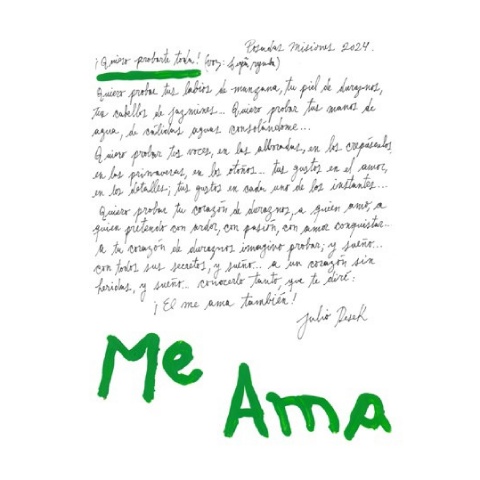 Posadas Misiones 2024.
¡Quiero probarte toda! (voz: segunda)
Quiero probar tus labios de manzana, tu piel de duraznos,
tus cabellos de jazmines... Quiero probar tus manos de
agua, de cálidas aguas consolándome...
Quiero probar tus voces, en las alboradas, en los crepúsculos
en las primaveras, en los otoños... tus gustos en el amor,
en los detalles; tus gustos en cada uno de los instantes...
Quiero probar tu corazón de duraznos, a quien amo, a
quien pretendo con ardor, con pasión, con amor conquistar...
a tu corazón de duraznos imagino probar; y sueño...
con todos sus secretos, y sueño... a un corazón sin
heridas, y sueño... conocerlo tanto, que te diré:
¡El me ama también!
Julio
Me
Ama